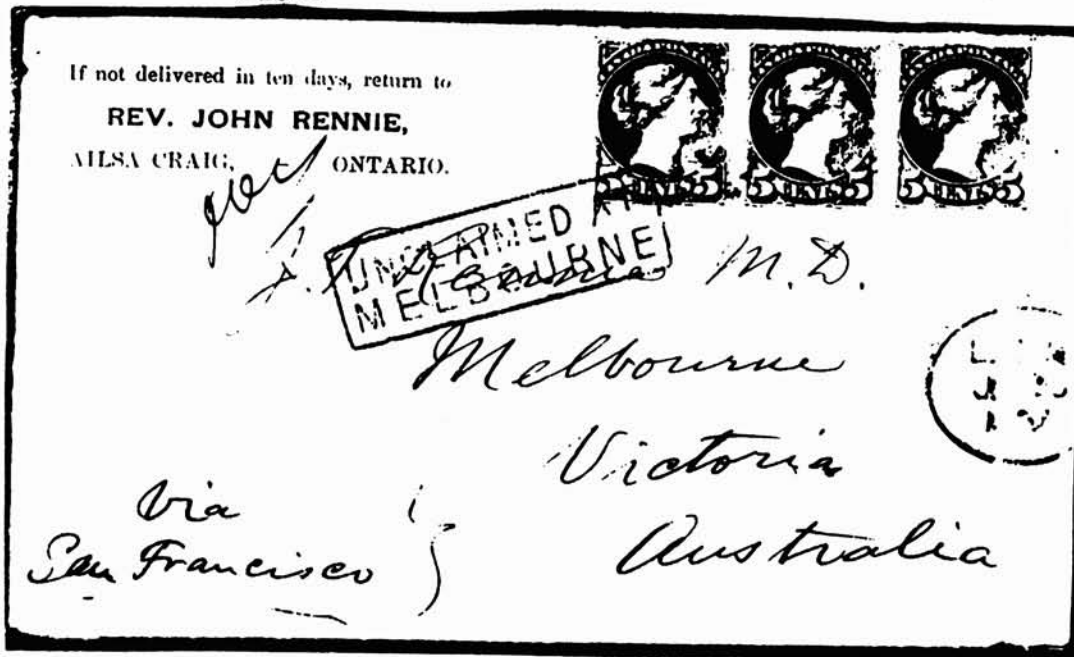 If not delivered in ten days, return to
REV. JOHN RENNIE,
AILSA CRAIG, ONTARIO.
5 CENTS 5
5 CENTS 5
5 CENTS 5
UNCLAIMED AT
MELBOURNE
M.D.
Melbourne
Victoria
Australia
Via
San Francisco